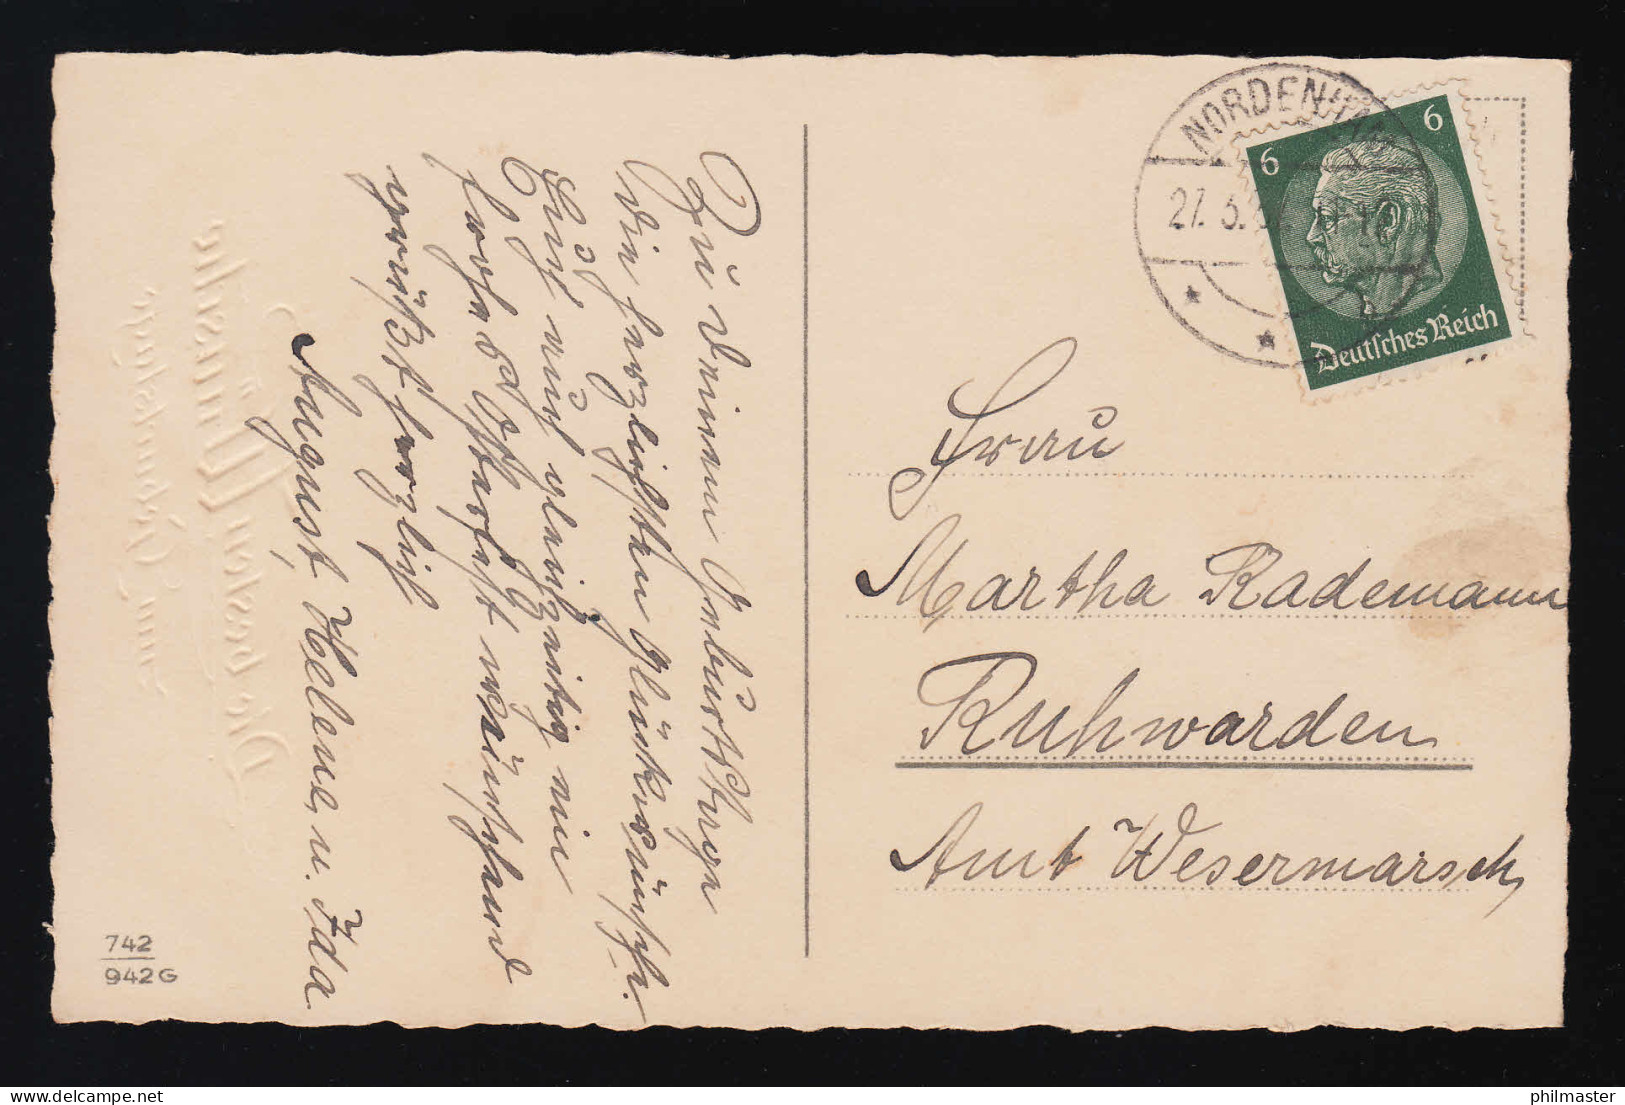 Zu Deinem Geburtstage
die herzlichsten Glückwünsche.
Euch nun gleichzeitig ein
frohes Osterfest wünschend
grüßt herzlich
August, Helene, u. Ida
742
942G
NORDENHAM
27. 3.
6
6
Deutsches Reich
Frau
Martha Rademann
Ruhwarden
Amt Wesermarsch
philmaster